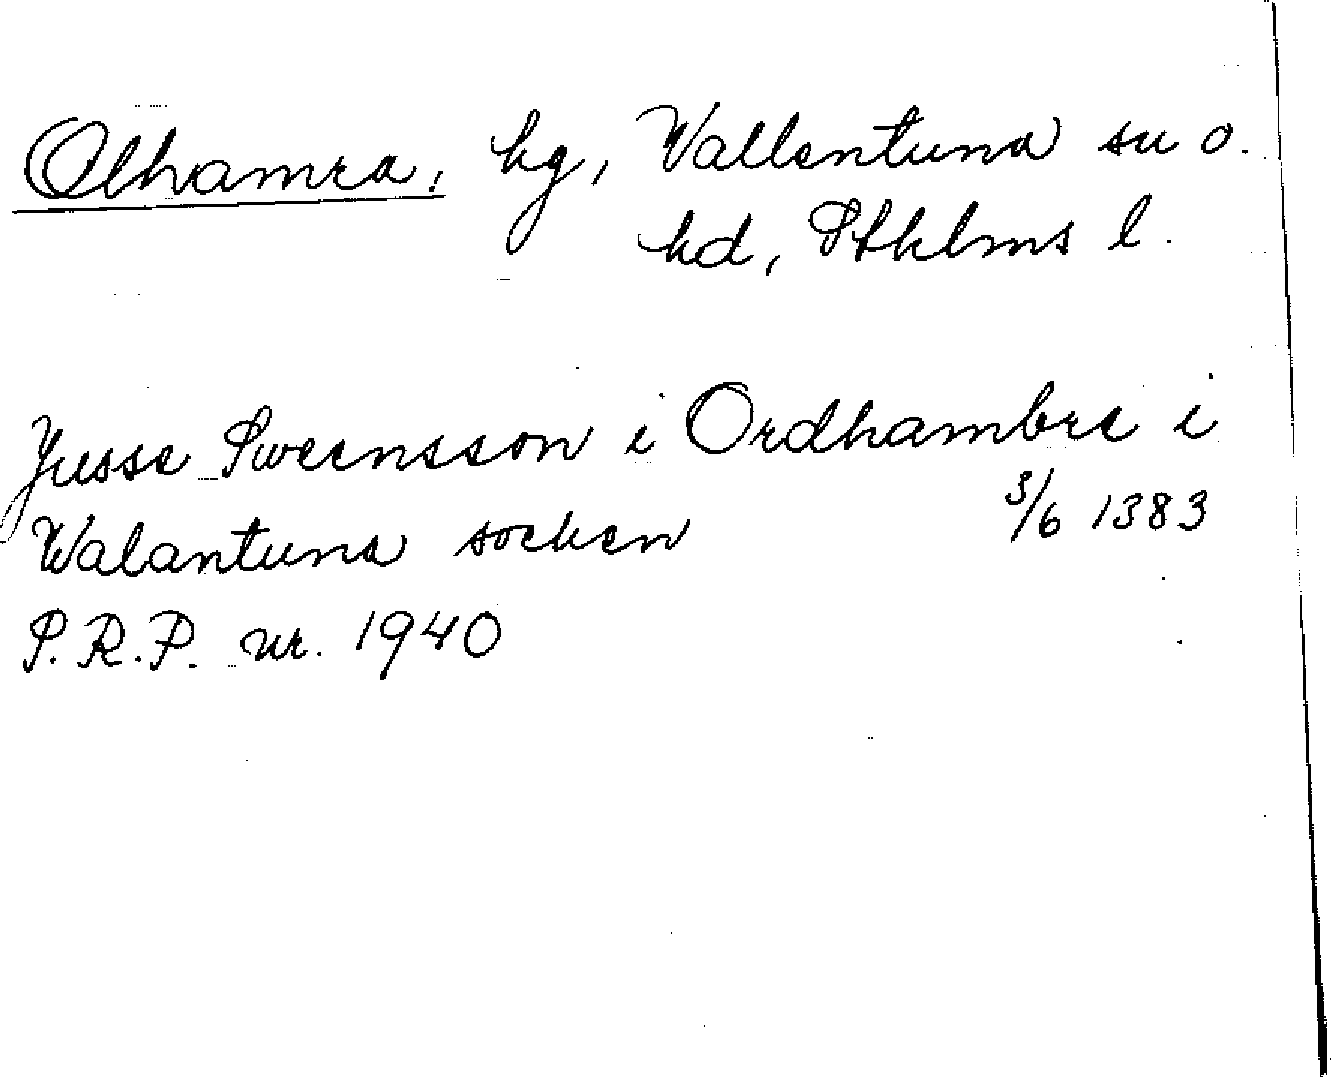 Olhamra, hg, Vallentuna sn o.
hd, Sthlms l.
Jusse Sweensson i Ordhambre i
Walantuna socken 3/6 1383
S.R.P. nr. 1940